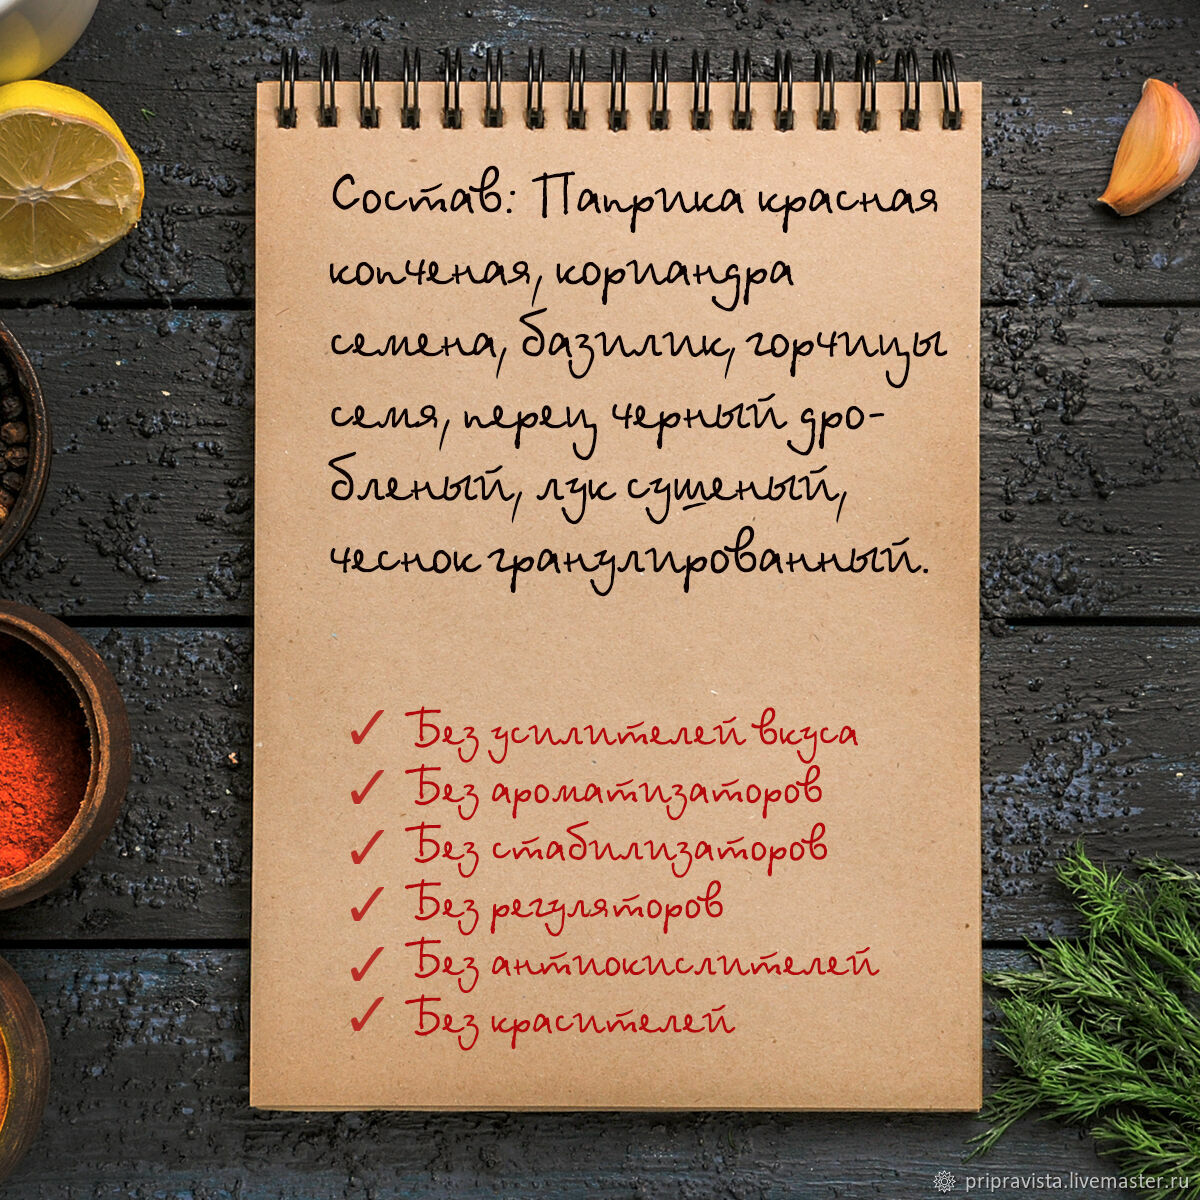 Состав: Паприка красная
копченая, кориандра
семена, базилик, горчицы
семя, перец черный дро-
бленый, лук сушеный,
чеснок гранулированный.
✓ Без усилителей вкуса
✓ Без ароматизаторов
✓ Без стабилизаторов
✓ Без регуляторов
✓ Без антиокислителей
✓ Без красителей
pripravista.livemaster.ru